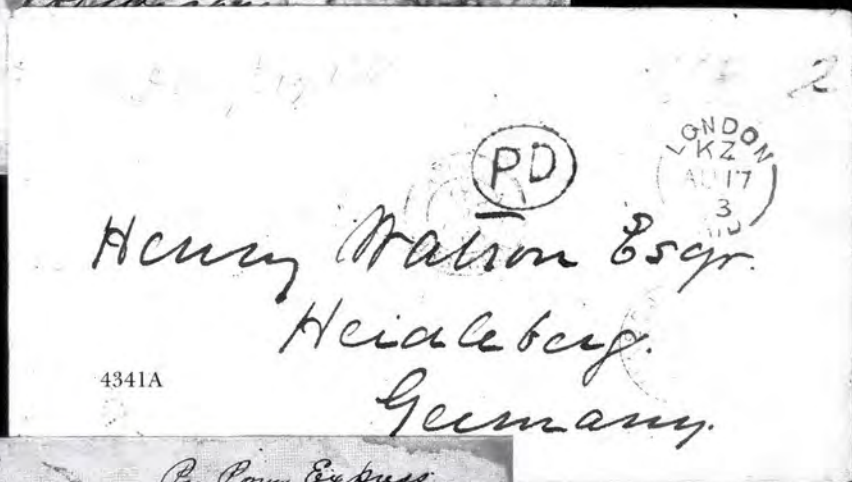 2
PD
LONDON
KZ
AU 17
3
Henry Watson Esqr.
Heidleberg.
Germany.
4341A
Express